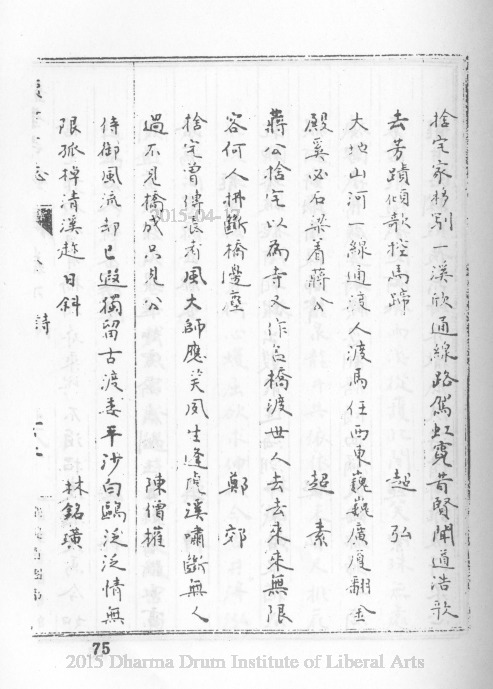 捨宅家移別一溪欣通線路駕虹霓昔賢聞道浩歌
去芳蹟傾欹控馬蹄　超弘
大地山河一線通渡人渡馬任西東巍巍廣廈翻金
殿奚必石梁着蔣公　超素
蔣公捨宅以為寺又作長橋渡世人去去來來無限
客何人拂斷橋邊塵　鄭郊
捨宅曽傳長者風大師應笑夙生逢虎溪嘯斷無人
過不見橋成只見公　陳儹檴
侍御風流却已遐獨留古渡委平沙向鷗泛泛情無
限孤棹清溪趁日斜　林銘璜
志
詩
75
2015-04-17
2015 Dharma Drum Institute of Liberal Arts